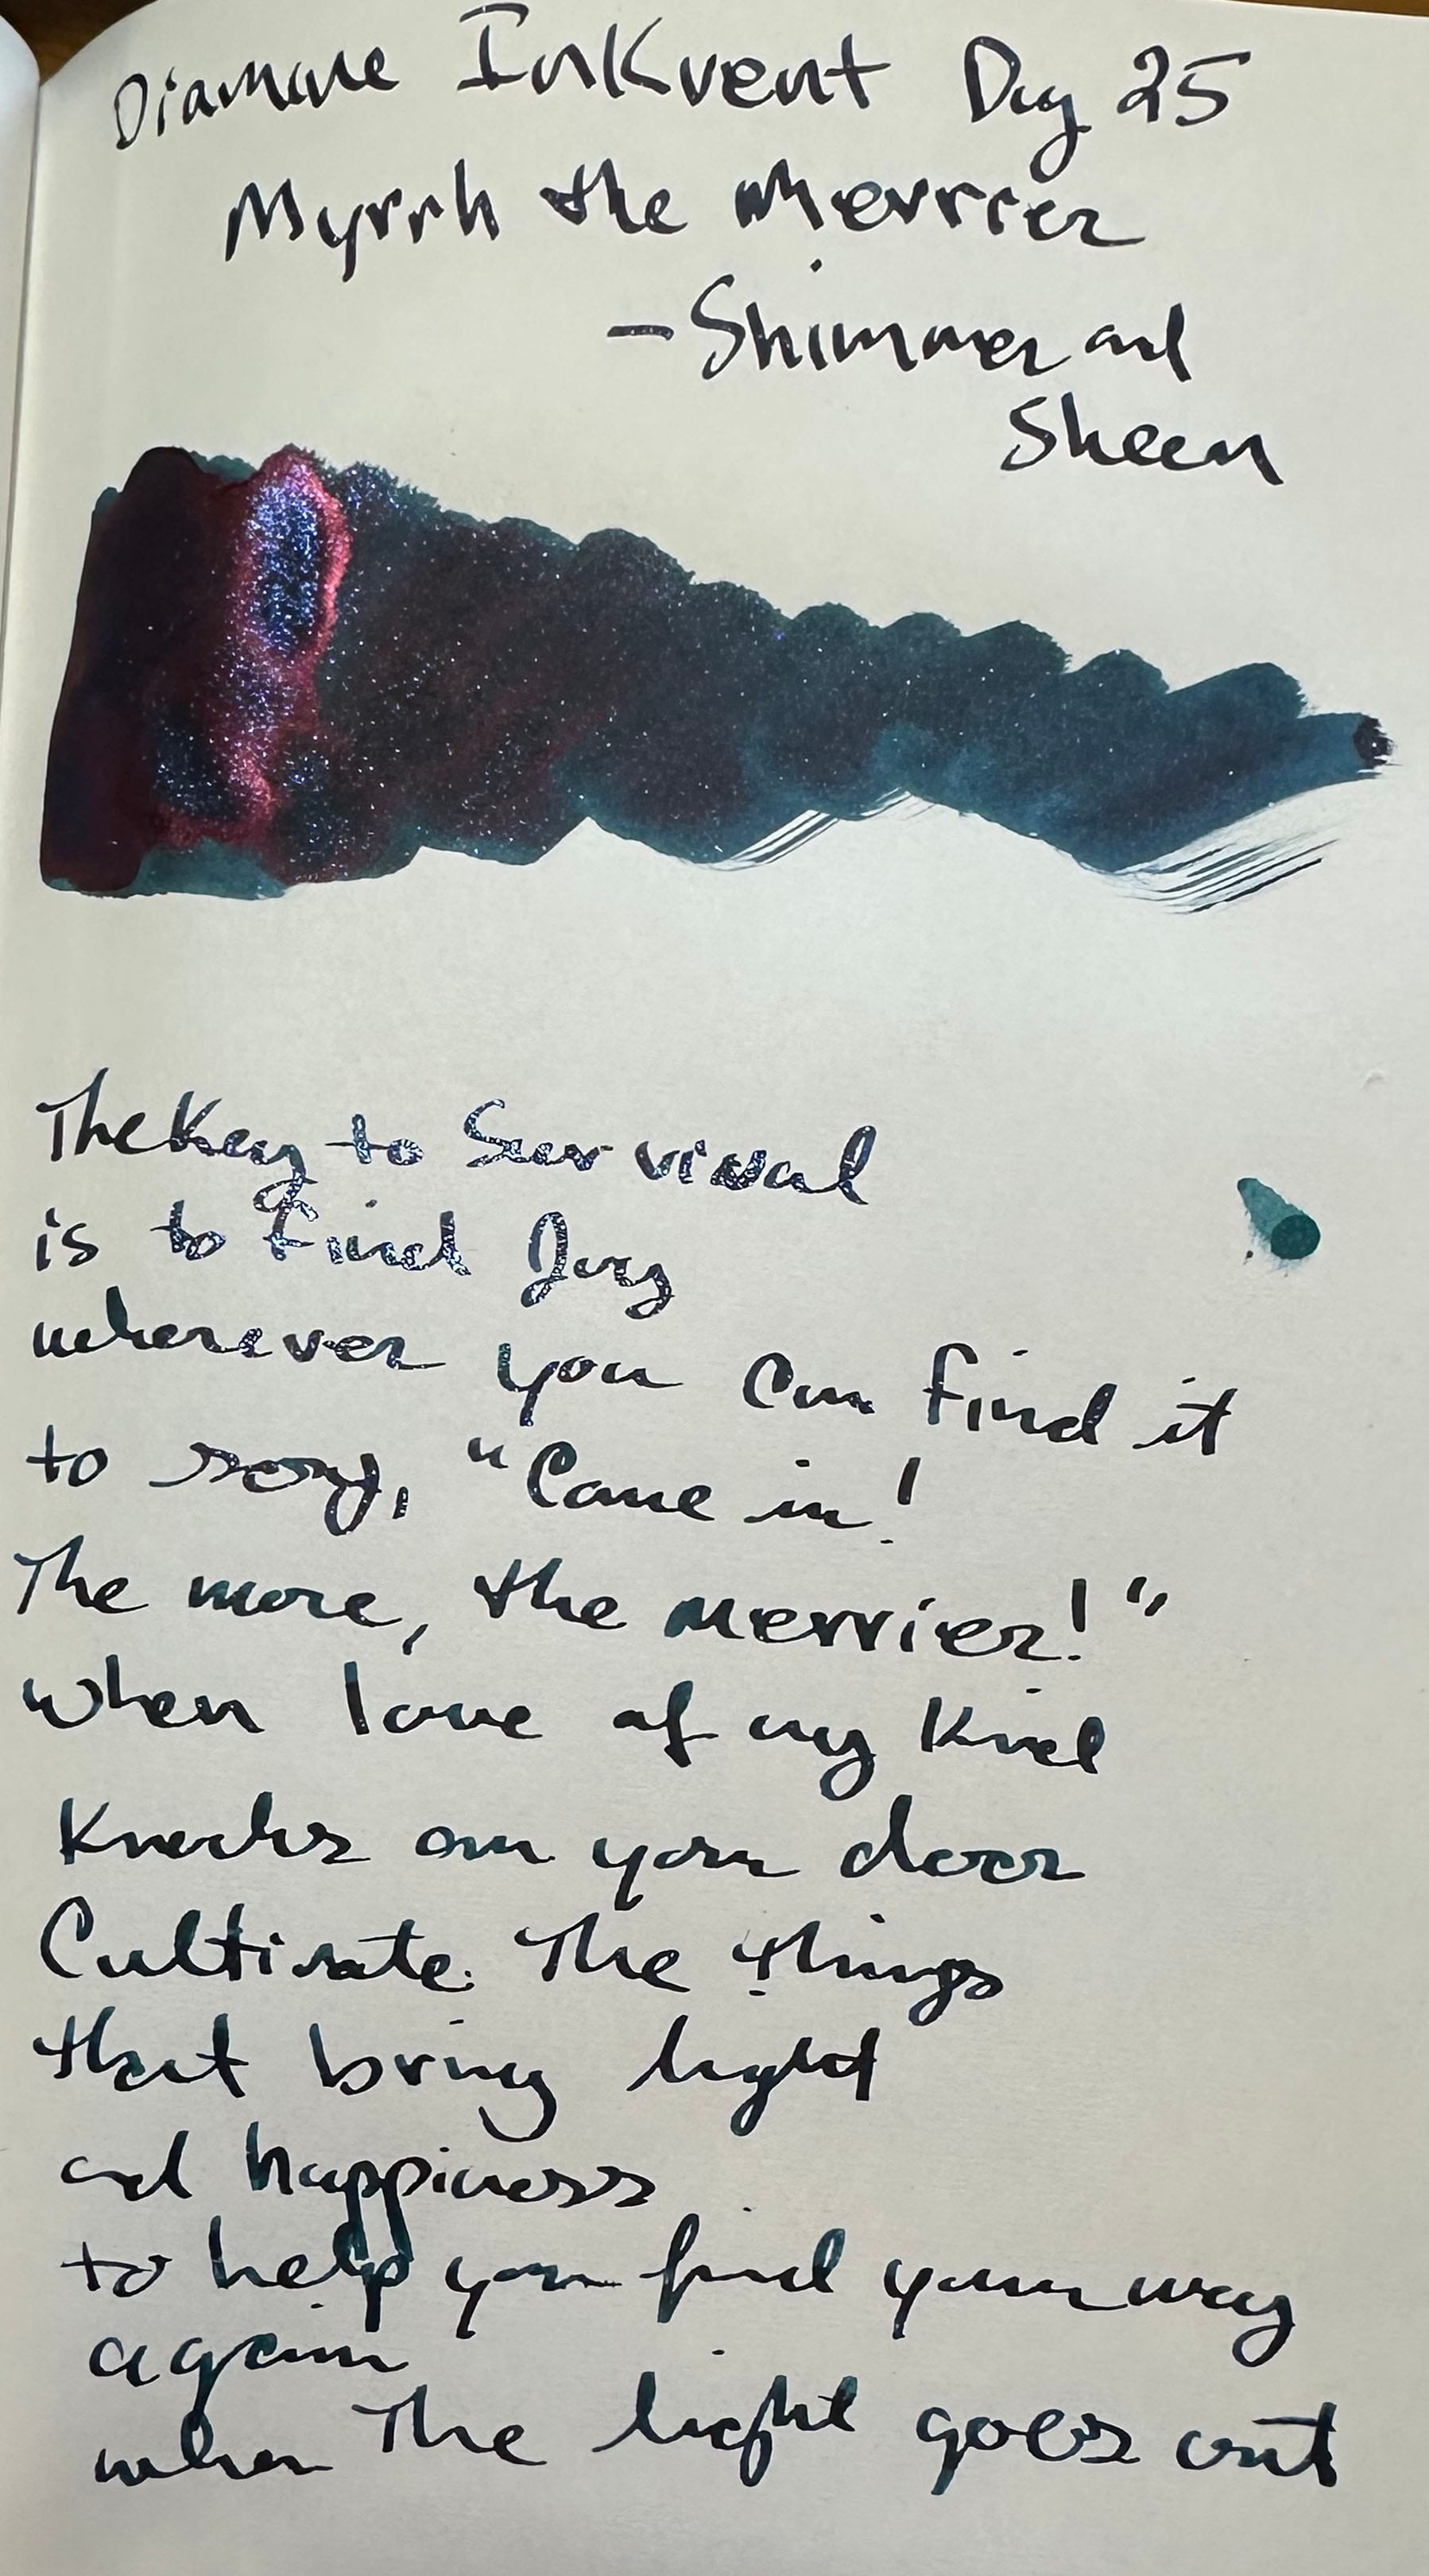 Diamine InKvent Day 25
Myrrh the Merrier
- Shimmer and
Sheen
The Key to Survival
is to Find Joy
wherever you can find it
to say, "Come in!
The more, the merrier!"
when love of any Kind
Knocks on your door
Cultivate The things
that bring light
and happiness
to help you find your way
again
when The light goes out